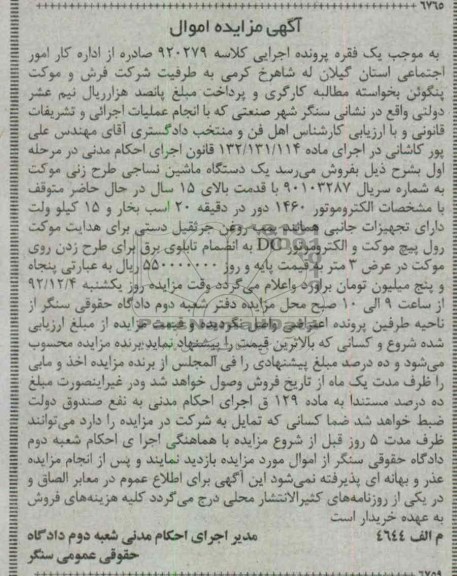 ۶۷۶۵
آگهی مزایده اموال
به موجب یک فقره پرونده اجرایی کلاسه ۹۲۰۲۷۹ صادره از اداره کار امور
اجتماعی استان گیلان له شاهرخ کرمی به طرفیت شرکت فرش و موکت
پنگوئن بخواسته مطالبه کارگری و پرداخت مبلغ پانصد هزارریال نیم عشر
دولتی واقع در نشانی سنگر شهر صنعتی که با انجام عملیات اجرائی و تشریفات
قانونی و با ارزیابی کارشناس اهل فن و منتخب دادگستری آقای مهندس علی
پور کاشانی در اجرای ماده ۱۳۲/۱۳۱/۱۱۴ قانون اجرای احکام مدنی در مرحله
اول بشرح ذیل بفروش می‌رسد یک دستگاه ماشین نساجی طرح زنی موکت
به شماره سریال ۹۰۱۰۳۲۸۷ با قدمت بالای ۱۵ سال در حال حاضر متوقف
با مشخصات الکتروموتور ۱۴۶۰ دور در دقیقه ۲۰ اسب بخار و ۱۵ کیلو ولت
دارای تجهیزات جانبی همانند پمپ روغن جرثقیل دستی برای هدایت موکت
رول پیچ موکت و الکتروموتور DC به انضمام تابلوی برق برای طرح زدن روی
موکت در عرض ۳ متر به قیمت پایه و روز ۵۵۰۰۰۰۰۰۰ ریال به عبارتی پنجاه
و پنج میلیون تومان برآورد واعلام می‌گردد وقت مزایده روز یکشنبه ۹۲/۱۲/۴
از ساعت ۹ الی ۱۰ صبح محل مزایده دفتر شعبه دوم دادگاه حقوقی سنگر از
ناحیه طرفین پرونده اعتراضی واصل نگردیده و قیمت مزایده از مبلغ ارزیابی
شده شروع و کسانی که بالاترین قیمت را پیشنهاد نماید برنده مزایده محسوب
می‌شود و ده درصد مبلغ پیشنهادی را فی المجلس از برنده مزایده اخذ و مابی
را ظرف مدت یک ماه از تاریخ فروش وصول خواهد شد ودر غیراینصورت مبلغ
ده درصد مستندا به ماده ۱۲۹ ق اجرای احکام مدنی به نفع صندوق دولت
ضبط خواهد شد ضما کسانی که تمایل به شرکت در مزایده را دارد می‌توانند
ظرف مدت ۵ روز قبل از شروع مزایده با هماهنگی اجرا ی احکام شعبه دوم
دادگاه حقوقی سنگر از اموال مورد مزایده بازدید نمایند و پس از انجام مزایده
عذر و بهانه ای پذیرفته نمی‌شود این آگهی برای اطلاع عموم در معابر الصاق و
در یکی از روزنامه‌های کثیرالانتشار محلی درج می‌گردد کلیه هزینه‌های فروش
به عهده خریدار است
م الف ۴۶۴۴ مدیر اجرای احکام مدنی شعبه دوم دادگاه
حقوقی عمومی سنگر
۶۷۵۹